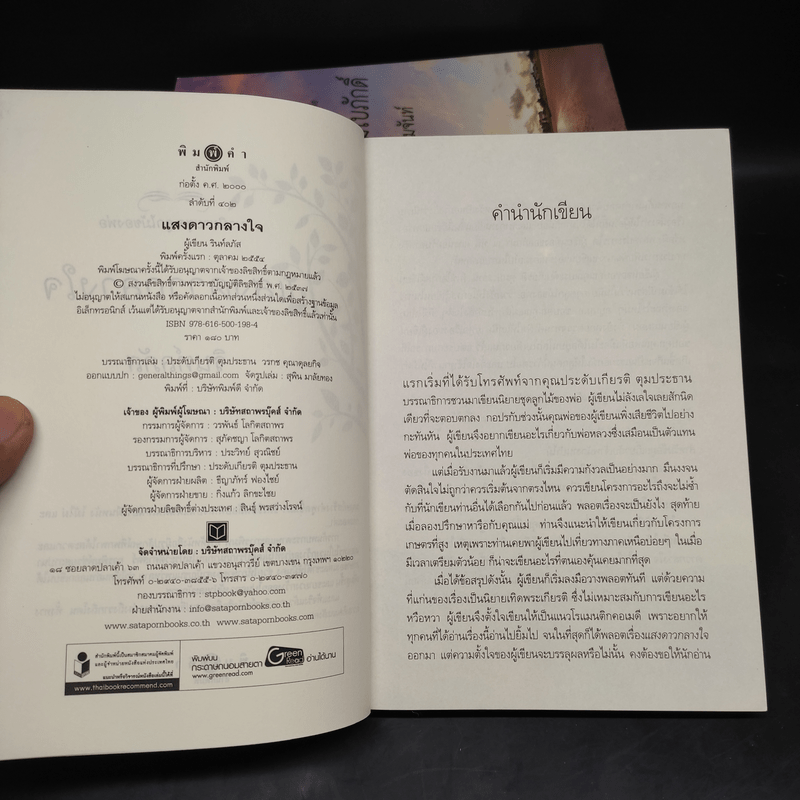 พิมพ์คำ
สำนักพิมพ์
ก่อตั้ง ค.ศ. ๒๐๐๐
ลำดับที่ ๔๐๒
แสงดาวกลางใจ
ผู้เขียน รินท์ลภัส
พิมพ์ครั้งแรก : ตุลาคม ๒๕๕๔
พิมพ์โฆษณาครั้งนี้ได้รับอนุญาตจากเจ้าของลิขสิทธิ์ตามกฎหมายแล้ว
© สงวนลิขสิทธิ์ตามพระราชบัญญัติลิขสิทธิ์ พ.ศ. ๒๕๓๗
ไม่อนุญาตให้สแกนหนังสือ หรือคัดลอกเนื้อหาส่วนหนึ่งส่วนใดเพื่อสร้างฐานข้อมูล
อิเล็กทรอนิกส์ เว้นแต่ได้รับอนุญาตจากสำนักพิมพ์และเจ้าของลิขสิทธิ์แล้วเท่านั้น
ISBN 978-616-500-198-4
ราคา ๑๘๐ บาท
บรรณาธิการเล่ม : ประดับเกียรติ ตุมประธาน วรกช คุณาดุลยกิจ
ออกแบบปก : generalthings@gmail.com จัดรูปเล่ม : สุพิน มาลัยทอง
พิมพ์ที่ : บริษัทพิมพ์ดี จำกัด
เจ้าของ ผู้พิมพ์ผู้โฆษณา : บริษัทสถาพรบุ๊คส์ จำกัด
กรรมการผู้จัดการ : วรพันธ์ โลกิตสถาพร
รองกรรมการผู้จัดการ : สุภัคชญา โลกิตสถาพร
บรรณาธิการบริหาร : ประวิทย์ สุวณิชย์
บรรณาธิการที่ปรึกษา : ประดับเกียรติ ตุมประธาน
ผู้จัดการฝ่ายผลิต : ชีญาภัทร์ ฟองไชย์
ผู้จัดการฝ่ายขาย : กิ่งแก้ว ลิกขะไชย
ผู้จัดการฝ่ายลิขสิทธิ์ต่างประเทศ : สินธุ์ พรสว่างโรจน์
จัดจำหน่ายโดย : บริษัทสถาพรบุ๊คส์ จำกัด
๑๘ ซอยลาดปลาเค้า ๖๓ ถนนลาดปลาเค้า แขวงอนุสาวรีย์ เขตบางเขน กรุงเทพฯ ๑๐๒๒๐
โทรศัพท์ ๐-๒๙๔๐-๓๘๕๕-๖ โทรสาร ๐-๒๙๔๐-๓๙๗๐
กองบรรณาธิการ : stpbook@yahoo.com
ฝ่ายสำนักงาน : info@satapornbooks.com
www.satapornbooks.co.th www.satapornbooks.com
สำนักพิมพ์นี้เป็นสมาชิกสมาคมผู้จัดพิมพ์
และผู้จำหน่ายหนังสือแห่งประเทศไทย
แนะนำหรือวิจารณ์หนังสือเล่มนี้ได้ที่
www.thaibookrecommend.com
พิมพ์บน
กระดาษถนอมสายตา Green Read อ่านได้นาน
www.greenread.com
คำนำนักเขียน
แรกเริ่มที่ได้รับโทรศัพท์จากคุณประดับเกียรติ ตุมประธาน
บรรณาธิการชวนมาเขียนนิยายชุดลูกไม้ของพ่อ ผู้เขียนไม่ลังเลใจเลยสักนิด
เดียวที่จะตอบตกลง กอปรกับช่วงนั้นคุณพ่อของผู้เขียนเพิ่งเสียชีวิตไปอย่าง
กะทันหัน ผู้เขียนจึงอยากเขียนอะไรเกี่ยวกับพ่อหลวงซึ่งเสมือนเป็นตัวแทน
พ่อของทุกคนในประเทศไทย
แต่เมื่อรับงานมาแล้วผู้เขียนก็เริ่มมีความกังวลเป็นอย่างมาก มึนงงจน
ตัดสินใจไม่ถูกว่าควรเริ่มต้นจากตรงไหน ควรเขียนโครงการอะไรถึงจะไม่ซ้ำ
กับที่นักเขียนท่านอื่นได้เลือกกันไปก่อนแล้ว พลอตเรื่องจะเป็นยังไง สุดท้าย
เมื่อลองปรึกษาหารือกับคุณแม่ ท่านจึงแนะนำให้เขียนเกี่ยวกับโครงการ
เกษตรที่สูง เหตุเพราะท่านเคยพาผู้เขียนไปเที่ยวทางภาคเหนือบ่อยๆ ในเมื่อ
มีเวลาเตรียมตัวน้อย ก็น่าจะเขียนอะไรที่ตนเองคุ้นเคยมากที่สุด
เมื่อได้ข้อสรุปดังนั้น ผู้เขียนก็เริ่มลงมือวางพลอตทันที แต่ด้วยความ
ที่แก่นของเรื่องเป็นนิยายเทิดพระเกียรติ ซึ่งไม่เหมาะสมกับการเขียนอะไร
หวือหวา ผู้เขียนจึงตั้งใจเขียนให้เป็นแนวโรแมนติกคอเมดี เพราะอยากให้
ทุกคนที่ได้อ่านเรื่องนี้อ่านไปยิ้มไป จนในที่สุดก็ได้พลอตเรื่องแสงดาวกลางใจ
ออกมา แต่ความตั้งใจของผู้เขียนจะบรรลุผลหรือไม่นั้น คงต้องขอให้นักอ่าน